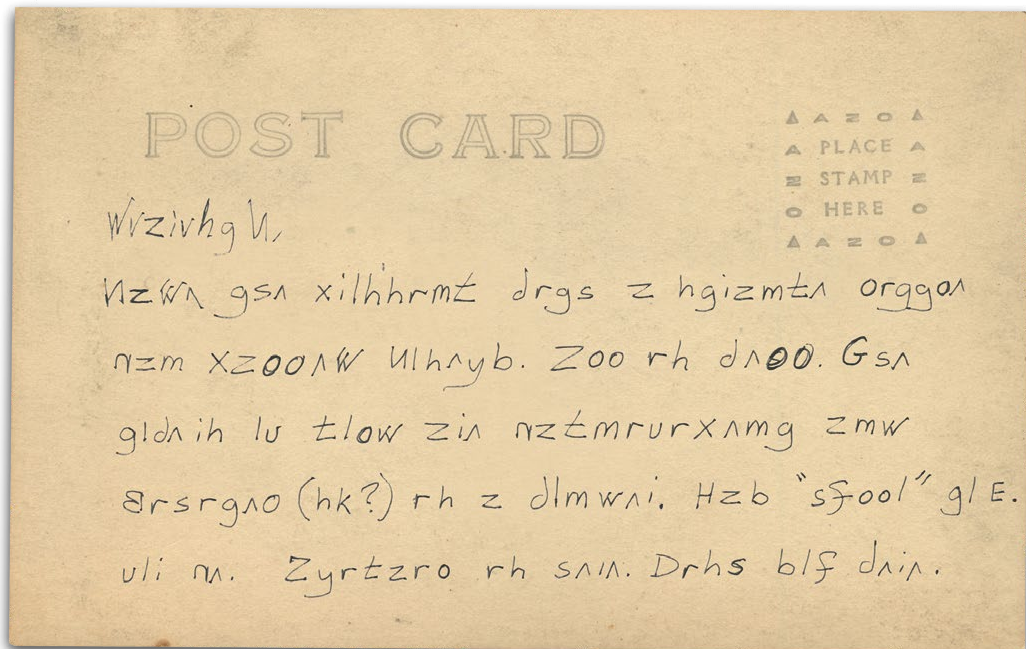 POST CARD
▲ A Z O ▲
A PLACE A
Z STAMP Z
O HERE O
▲ A Z O ▲
Wvzivhg U,
Nzwv gsv xilhhrmt drgs z hgizmtv orggov
nzm xzoovw Ulhvyb. Zoo rh dvoo. Gsv
gldvih lu tlow ziv nztmrurxvmg zmw
Arsrgvo (hk?) rh z dlmwvi. Hzb "sfool" gl E.
uli nv. Zyrtzro rh sviv. Drhs blf dviv.